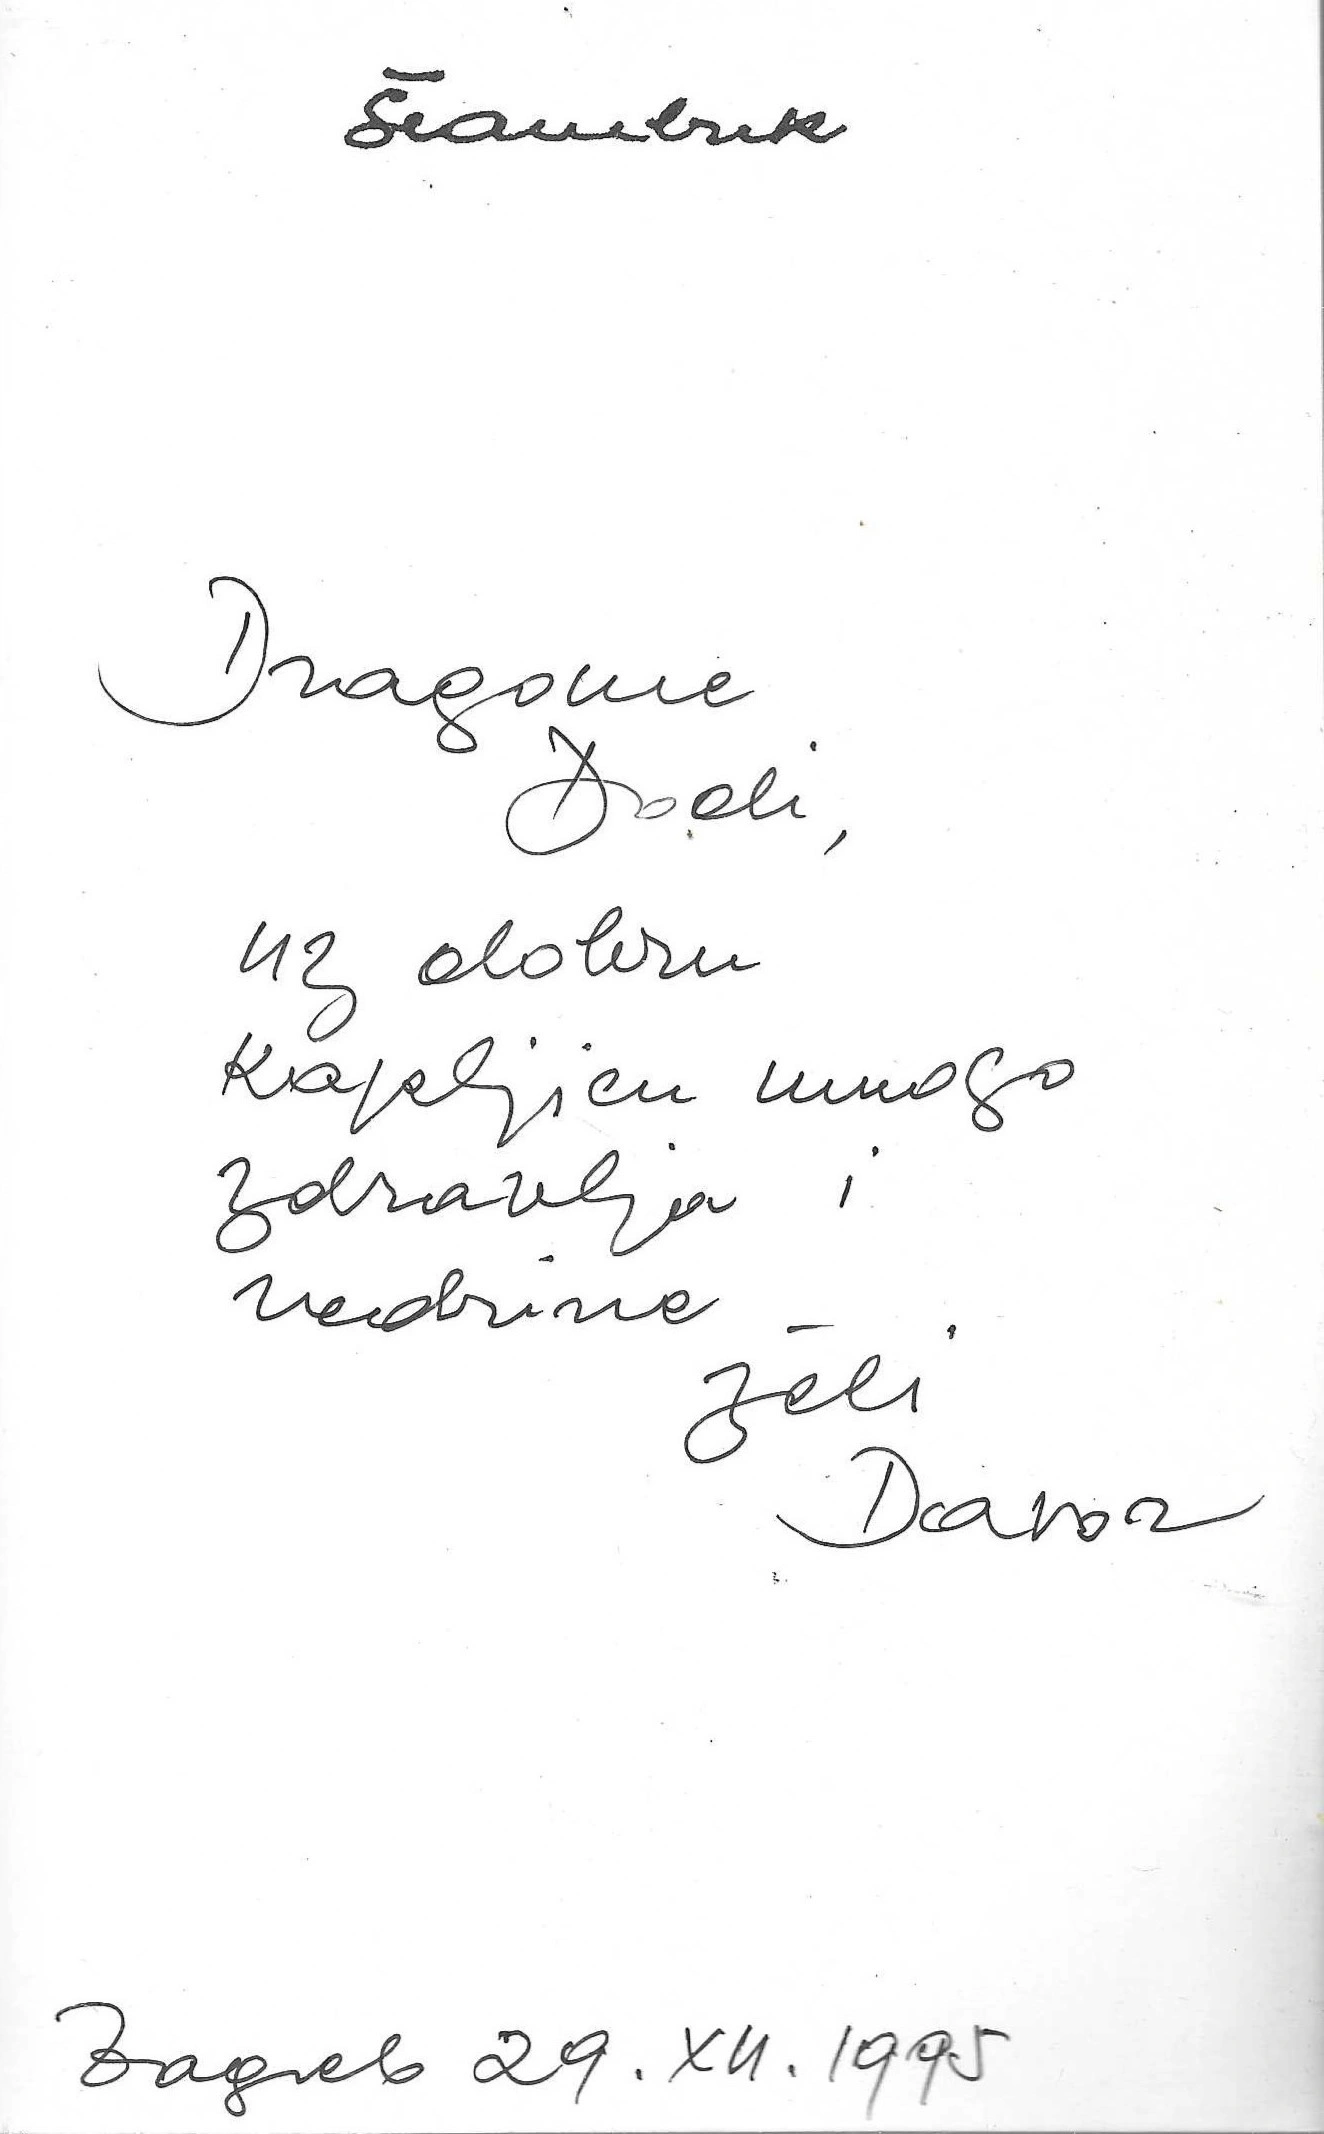 Šćambuk
Dragome
Dodi,
uz dobru
kapljicu mnogo
zdravlja i
vedrine
želi
Davor
Zagreb 29. XII. 1995